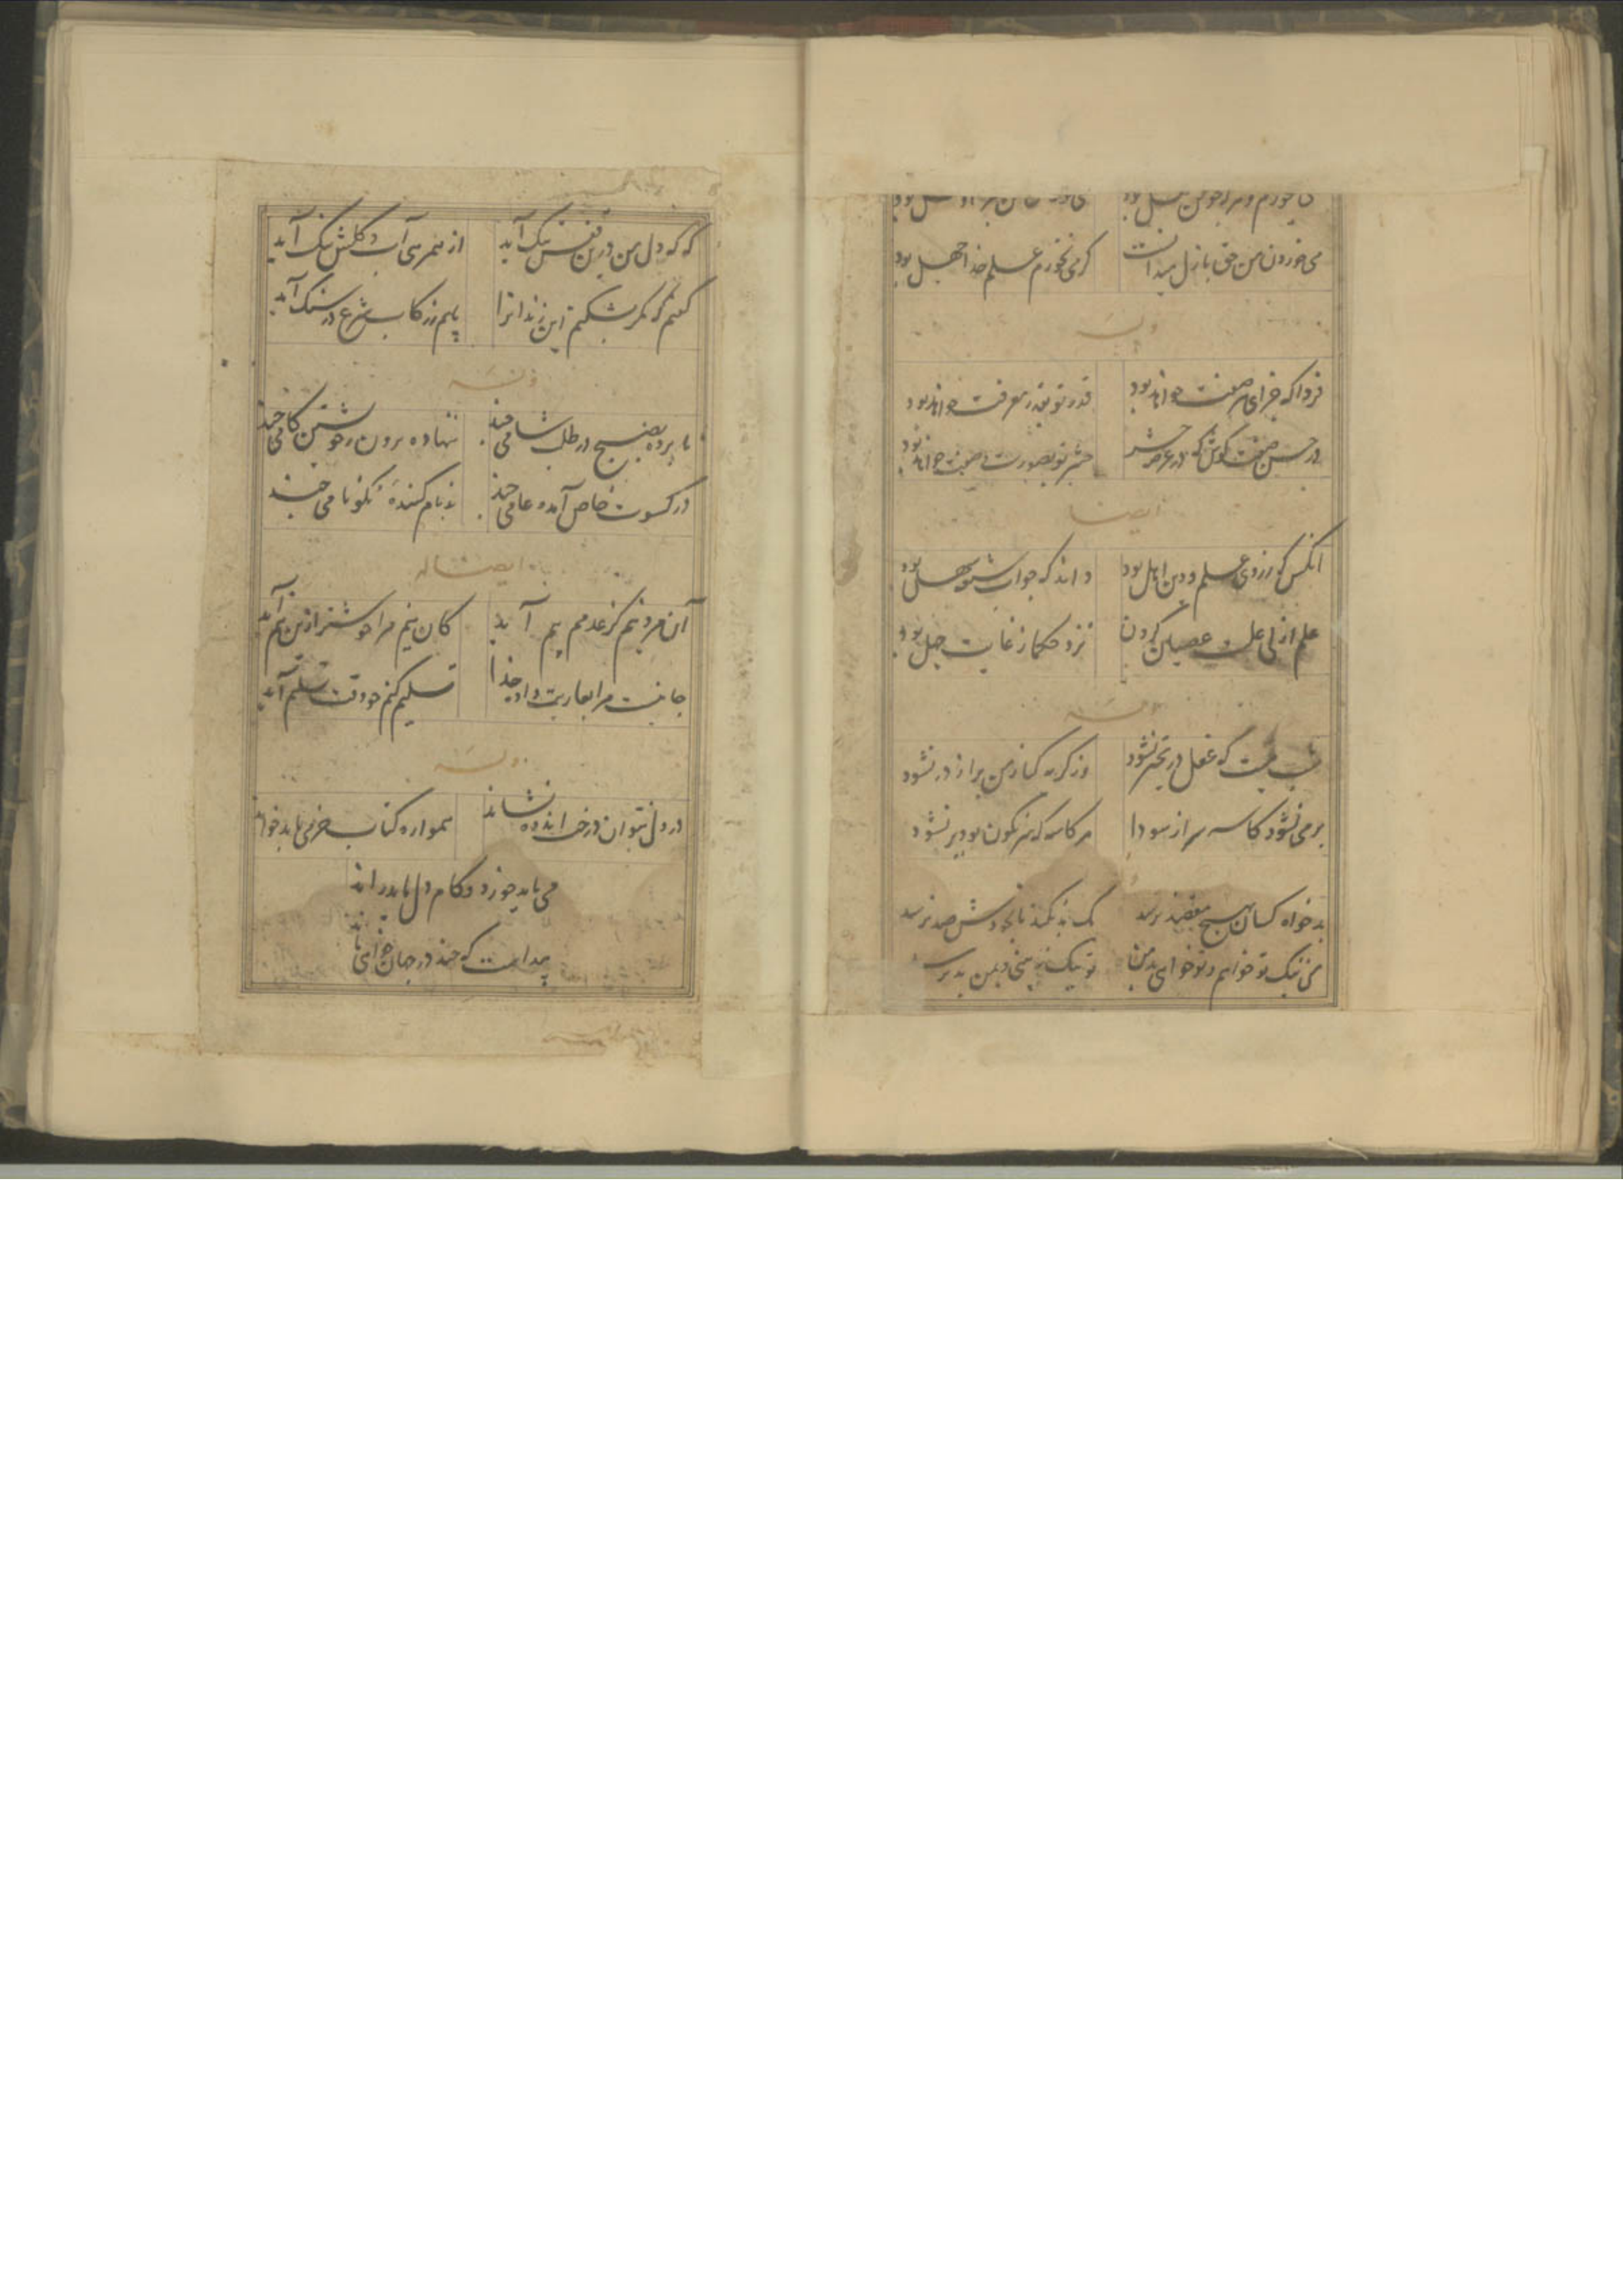 می خورم و هر که چو من اهل بود
می خوردن من حق بازل میدانست
کر می نخورم علم خدا جهل بود
وله
فردا که جزای هر صفت خواهد بود
قدر تو بقدر معرفت خواهد بود
در حسن صفت کوش که در عرصه حشر
حشر تو بصورت صفت خواهد بود
ایضا
انکس که ز روی علم و دین اهل بود
داند که جواب شبهه سهل بود
علم ازلی علت عصیان کردن
نزد حکما ز غایت جهل بود
وله
شب نیست که عقل در تحیر نشود
وز کریه کنار من پر از در نشود
پر می نشود کاسه سر از سودا
هر کاسه که سرنکون بود پر نشود
بد خواه کسان هیچ بمقصد نرسد
یک بد نکند تا بخودش صد نرسد
من نیک تو خواهم و تو خواهی بد من
تو نیک نه بینی و بمن بد نرسد
که که دل من درین قفس تنک آید
از همرهی آب و کلش ننک آید
کفتم که مکر بشکنم این زندانرا
پایم ز رکاب شرع در سنک آید
وله
نا برده بصبح در طلب شامی چند
ننهاده برون ز خویشتن کامی چند
در کسوت خاص آمده عامی چند
بد نام کننده نکونامی چند
ایضا له
آن مرد نیم کز عدمم بیم آید
کان نیم مرا خوشتر ازین نیم آید
جانیست مرا بعاریت داد خدا
تسلیم کنم چو وقت تسلیم آید
وله
در دل نتوان درخت اندوه نشاند
همواره کتاب خرمی باید خواند
می باید خورد و کام دل باید راند
پیداست که چند در جهان خواهی ماند